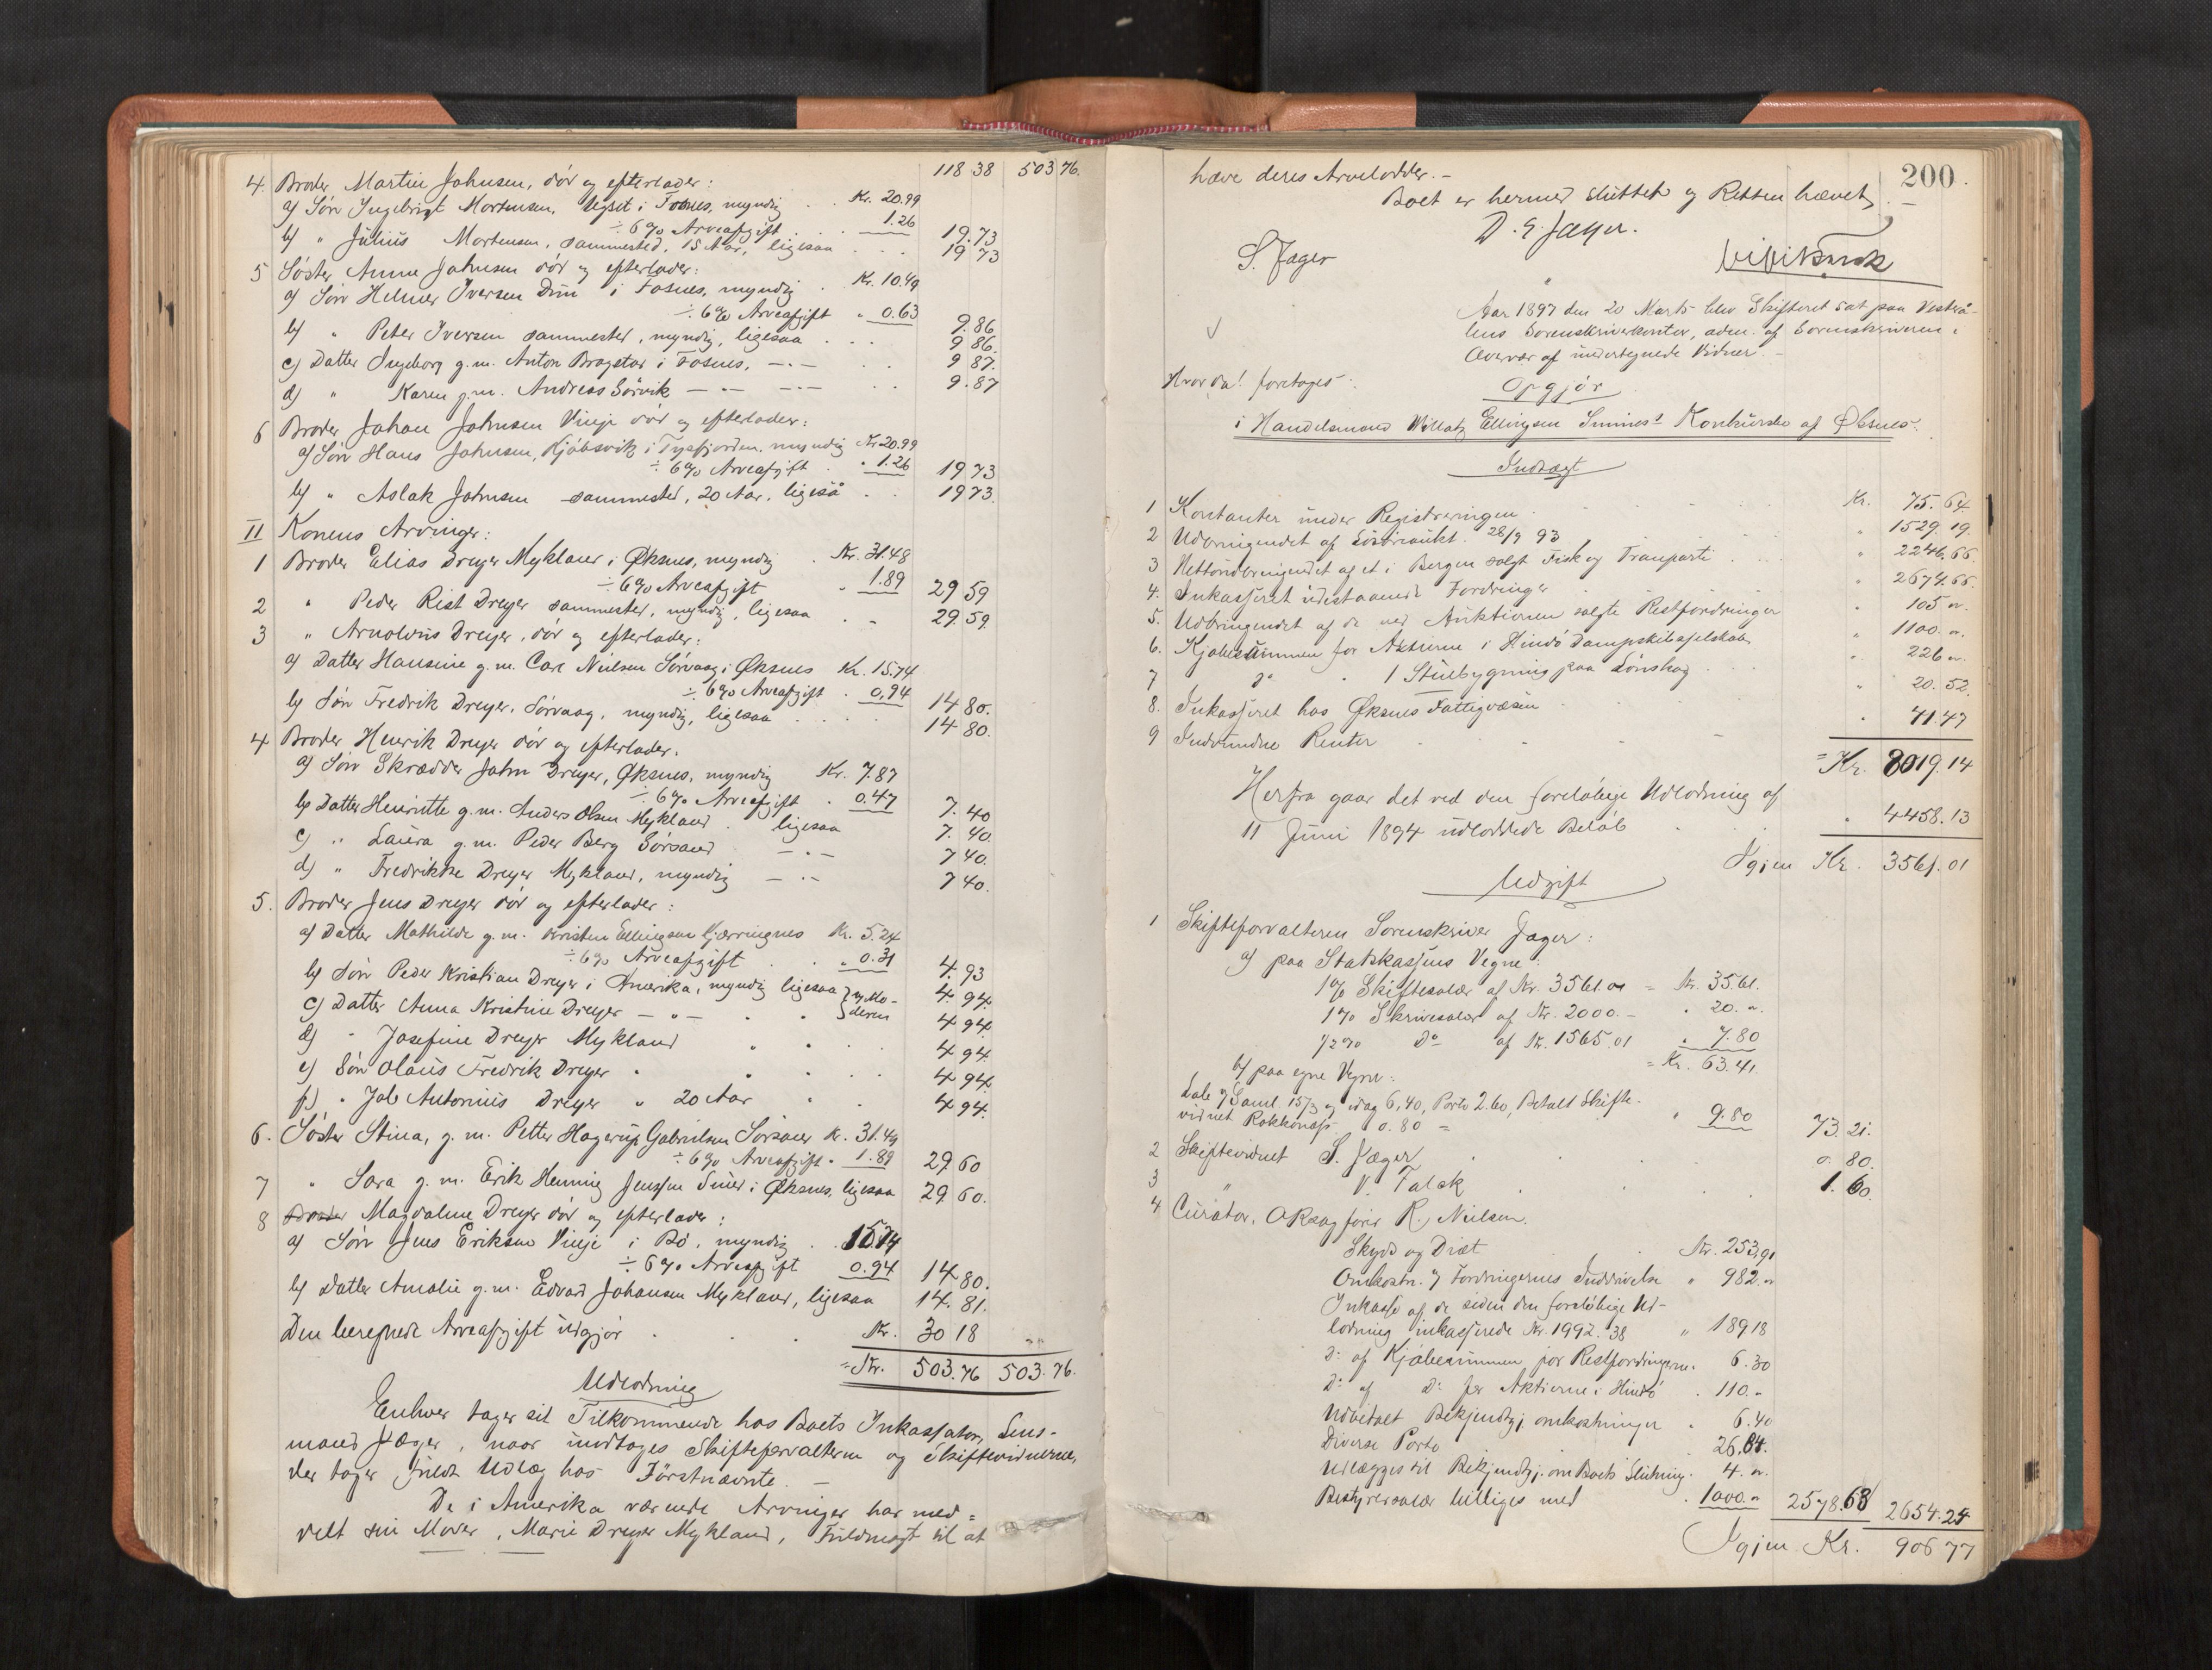 118 38 503 76.
4. Broder Martin Johnsen, död og efterlader:
a) Sön Ingebrigt Mortensen, i Fosnes, myndig . . Kr. 20.99
÷ 6% Arveafgift . . 1.26 19.73
b) " Julius Mortensen, sammested, 15 Aar, ligesaa . . . 19 73
5 Söster Anne Johnsen död og efterlader:
a) Sön Helmer Iversen Dun i Fosnes, myndig . Kr. 10.49
÷ 6% Arveafgift " 0.63 9.86
b) " Peter Iversen sammested, myndig, ligesaa . . . 9 86.
c) Datter Ingeborg g.m. Anton Bragstad i Fosnes, —"— . . 9 87.
d) " Karen g.m. Andreas Sörvik —"— —"— . . 9.87
6 Broder Johan Johnsen Vinje död og efterlader:
a) Sön Hans Johnsen, Kjöbsvik i Tysfjorden, myndig Kr. 20.99
÷ 6% Arveafgift . " 1.26 19 73
b) " Aslak Johnsen sammested, 20 Aar, ligesaa . . 19 73.
II Konens Arvinger:
1 Broder Elias Dreyer Mykland i Øksnes, myndig . Kr. 31.48
÷ 6% Arveafgift " 1.89 29 59
2 " Peder Rist Dreyer sammested, myndig, ligesaa . - 29.59.
3 " Arnoldus Dreyer, död og efterlader:
a) Datter Hansine g.m. Carl Nielsen Sörvaag i Øksnes Kr. 15.74
÷ 6% Arveafgift . 0,94 14 80.
b) Sön Fredrik Dreyer, Sörvaag, myndig, ligesaa . . . . 14 80.
4 Broder Henrik Dreyer död og efterlader:
a) Sön Skrædder John Dreyer, Øksnes, myndig Kr. 7.87
÷ 6% Arveafgift . 0.47 7.40
b) Datter Henriette g.m. Anders Olsen Mykland . ligesaa 7.40.
c) " Laura g.m. Peder Berg Sörsand —"— 7 40.
d) " Fredrikke Dreyer Mykland, myndig —"— 7 40.
5. Broder Jens Dreyer död og efterlader:
a) Datter Mathilde g.m. Kristen Ellingsen Gjærringnes Kr. 5.24
÷ 6% Arveafgift . . " 0.31 4.93
b) Sön Peder Kristian Dreyer i Amerika, myndig ligesaa } v/ Mo- 4.94.
c) Datter Anna Kristine Dreyer —"— " " } deren 4 94.
d) " Josefine Dreyer Mykland " " . . 4 94.
e) Sön Olaus Fredrik Dreyer " " . . . 4 94.
f) " Jab Antonius Dreyer " 20 Aar " . 4 94.
6. Söster Stina, g.m. Petter Hagerup Gabrielsen Sörsand Kr. 31.49
÷ 6% Arveafgift . 1.89 29 60
7 " Sara g.m. Erik Henning Jenssen Smed i Øksnes, ligesaa 29 60.
8 Magdaline Dreyer död og efterlader:
a) Sön Jens Eriksen Vinje i Bö, myndig . . 15.74
÷ 6% Arveafgift 0.94 14 80.
b) Datter Amalie g.m. Edvard Johansen Mykland, ligesaa 14.81.
Den beregnede Arveafgift udgjör . . . Kr. 30 18 " "
= Kr. 503.76 503.76.
Udlodning
Enhver tager sit Tilkommende hos Boets Inkassator, Lens-
mand Jæger, naar undtages Skifteforvalteren og Skiftevidnerne,
der tager fuldt Udlæg hos Förstnævnte. —
De i Amerika værende Arvinger har med=
delt sin Moder, Marie Dreyer Mykland, Fuldmagt til at
200.
hæve deres Arvelodder. —
Boet er hermed sluttet og Retten hævet. —
D. E. Jæger.
S. Jæger
"
Aar 1897 den 20 Marts blev Skifteret sat paa Vesteraa-
lens Sorenskriverkontor, adm. af Sorenskriveren i
Overvær af undertegnede Vidner. —
Hvorda! foretoges:
Opgjör
i Handelsmand Willatz Ellingsen Konkursbo af Øksnes.
Indtægt
1 Kontanter under Registreringen . . . . Kr. 75.64.
2 Udbringendet af Lösöreaukt. 28/9 93 . . " 1529.19.
3 Nettoudbringendet af et i Bergen solgt Fisk og Tranparti . . " 2246.66
4. Inkasseret udestaaende Fordringer . . " 2674.66.
5. Udbringendet af de ved Auktionen solgte Restfordringer " 105 "
6. Kjöbesummen for Aktierne i Hindö Dampskibsselskab " 1100. "
7 do " 1 Stuebygning paa Lönskog . . . " 226 "
8. Inkasseret hos Øksnes Fattigvæsen . . . " 20.52
9 Indvundne Renter . . . . . 41.47
= Kr. 8019.14
Herfra gaar det ved den foreløbige Udlodning af
11 Juni 1894 udloddede Beløb . . . " 4458.13
Igjen Kr. 3561.01
Udgift
1 Skifteforvalteren Sorenskriver Jæger:
a) paa Statskassens Vegne:
1% Skiftesalær af Kr. 3561.01 = Kr. 35.61.
1% Skrivesalær af Kr. 2000. — " 20. "
1/2% Do af Kr. 1565.01 " 7.80
= Kr. 63.41.
b) paa egne Vegne:
Saml. 15/3 og idag 6,40, Porto 2.60, Betalt Skifte-
vidnet 0.80 = " 9.80 73.21.
2 Skiftevidnet S. Jæger . . . . 0. 80.
3 " V. Falck . . . . 1. 60.
4 Curator, OR.sagförer R. Nielsen.
Skyds og Diæt . Kr. 253,91
Omkostn. v/ Fordringernes Inddrivelse " 982. "
Inkasso af de siden den foreløbige Ud-
lodning inkasserede Kr. 1992.38 " 189 18
do af Kjöbesummen for Restfordringerne . 6.30
do af do for Aktierne i Hindö . 110. "
Udbetalt Bekjendtgj. omkostninger " 6.40
Diverse Porto . 26,84.
Udlægges til Bekjendtgj. om Boets Slutning . 4. "
Bestyrersalær billiges med . 1000. " 2578.63 2654.24
Igjen Kr. 906 77